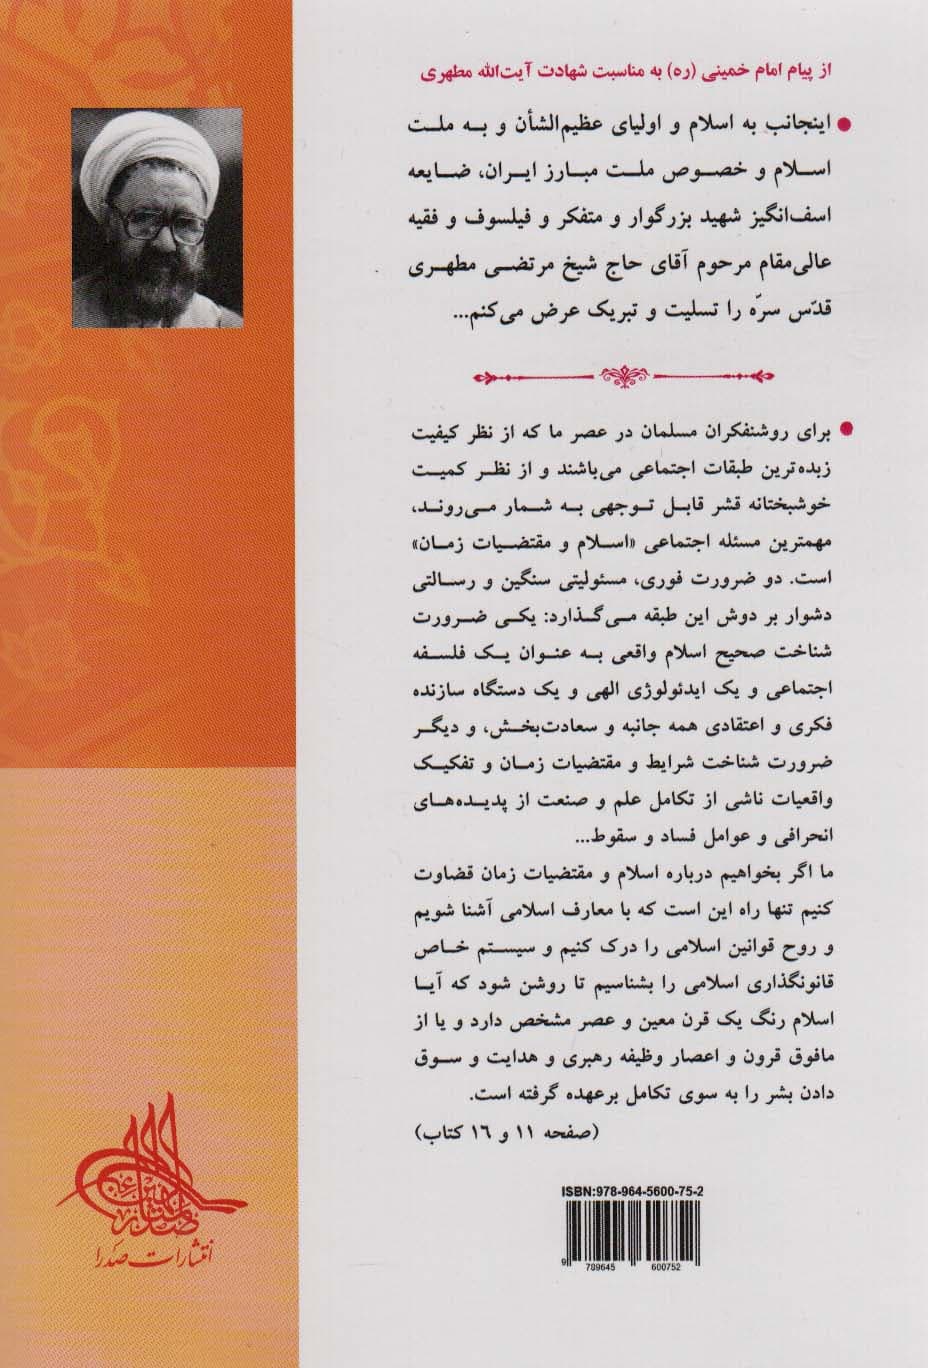 از پیام امام خمینی (ره) به مناسبت شهادت آیت‌الله مطهری
● اینجانب به اسلام و اولیای عظیم‌الشأن و به ملت
اسلام و خصوص ملت مبارز ایران، ضایعه
اسف‌انگیز شهید بزرگوار و متفکر و فیلسوف و فقیه
عالی‌مقام مرحوم آقای حاج شیخ مرتضی مطهری
قدّس سرّه را تسلیت و تبریک عرض می‌کنم...
● برای روشنفکران مسلمان در عصر ما که از نظر کیفیت
زبده‌ترین طبقات اجتماعی می‌باشند و از نظر کمیت
خوشبختانه قشر قابل توجهی به شمار می‌روند،
مهمترین مسئله اجتماعی «اسلام و مقتضیات زمان»
است. دو ضرورت فوری، مسئولیتی سنگین و رسالتی
دشوار بر دوش این طبقه می‌گذارد: یکی ضرورت
شناخت صحیح اسلام واقعی به عنوان یک فلسفه
اجتماعی و یک ایدئولوژی الهی و یک دستگاه سازنده
فکری و اعتقادی همه جانبه و سعادت‌بخش، و دیگر
ضرورت شناخت شرایط و مقتضیات زمان و تفکیک
واقعیات ناشی از تکامل علم و صنعت از پدیده‌های
انحرافی و عوامل فساد و سقوط...
ما اگر بخواهیم درباره اسلام و مقتضیات زمان قضاوت
کنیم تنها راه این است که با معارف اسلامی آشنا شویم
و روح قوانین اسلامی را درک کنیم و سیستم خاص
قانونگذاری اسلامی را بشناسیم تا روشن شود که آیا
اسلام رنگ یک قرن معین و عصر مشخص دارد و یا از
مافوق قرون و اعصار وظیفه رهبری و هدایت و سوق
دادن بشر را به سوی تکامل برعهده گرفته است.
(صفحه ۱۱ و ۱۶ کتاب)
ISBN:978-964-5600-75-2
9 789645 600752
انتشارات صدرا